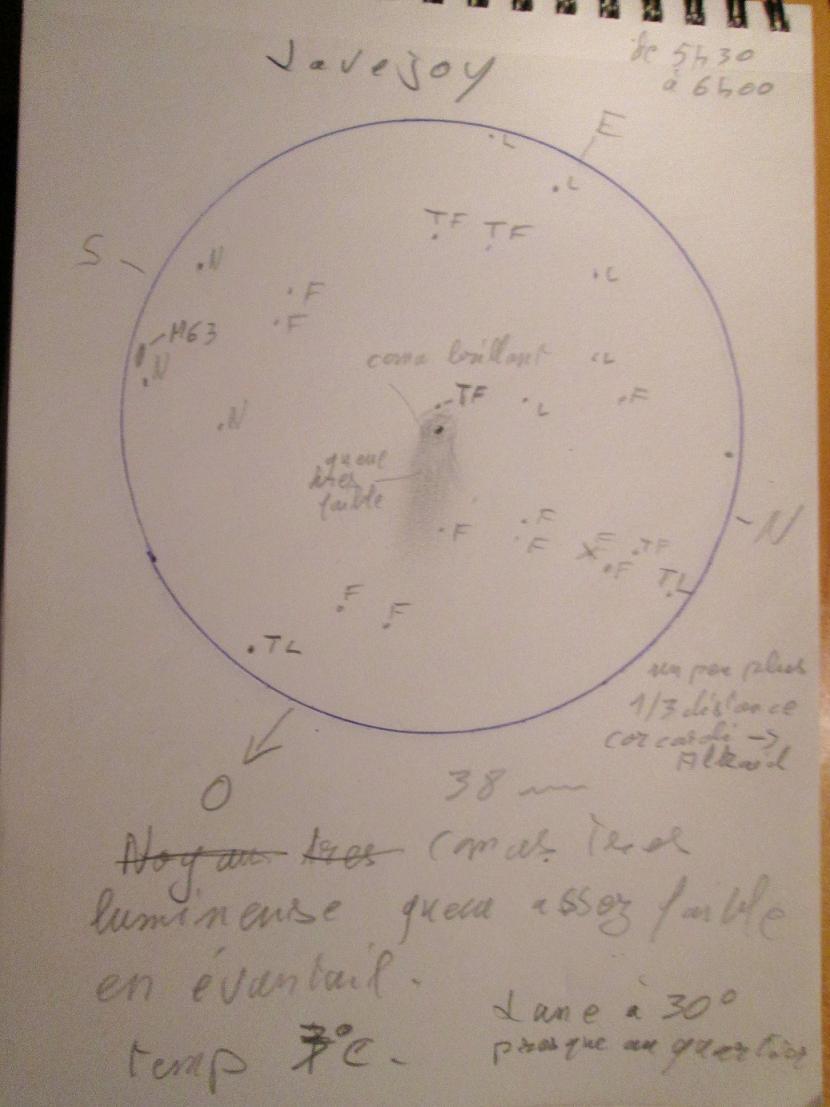 Lavejoy
de 5h30
à 6h00
E
L
L
TF TF
S
N
L
F
F
M63
N
coma brillant
L
TF
L
F
N
queue
très
faible
F
F
F
N
F
TF
F
TL
F
F
TL
un peu plus
1/3 distance
cor caroli →
Alkaid
O
38 mm
Noyau très comas très
luminense queue assez faible
en évantail.
Lune à 30°
temp 7°C.
presque au quartier